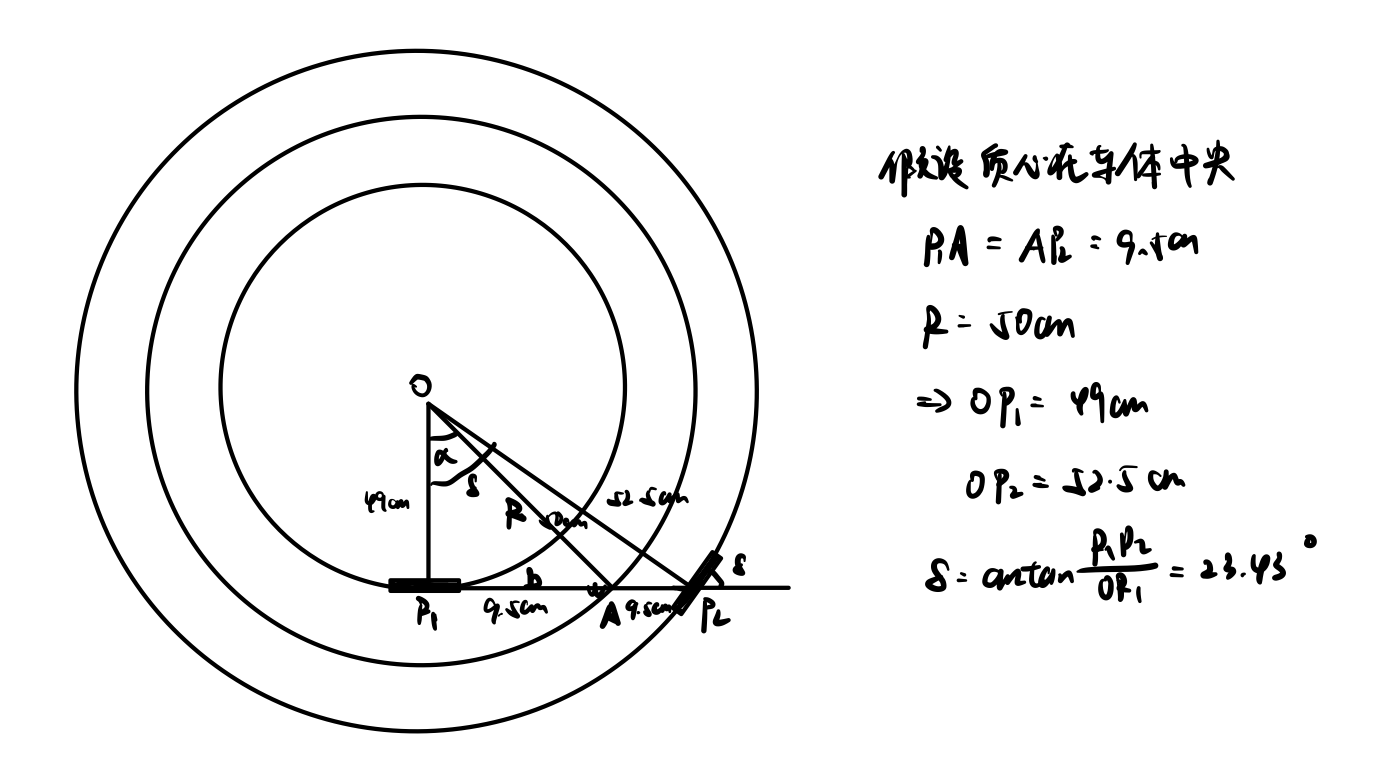 O
α
δ
49cm
R
50cm
52.5cm
b
δ
P₁
9.5cm
A
9.5cm
P₂
假设质心在车体中央
P₁A = AP₂ = 9.5cm
R = 50cm
=> OP₁ = 49cm
OP₂ = 52.5cm
δ = arctan P₁P₂/OP₁ = 23.43°